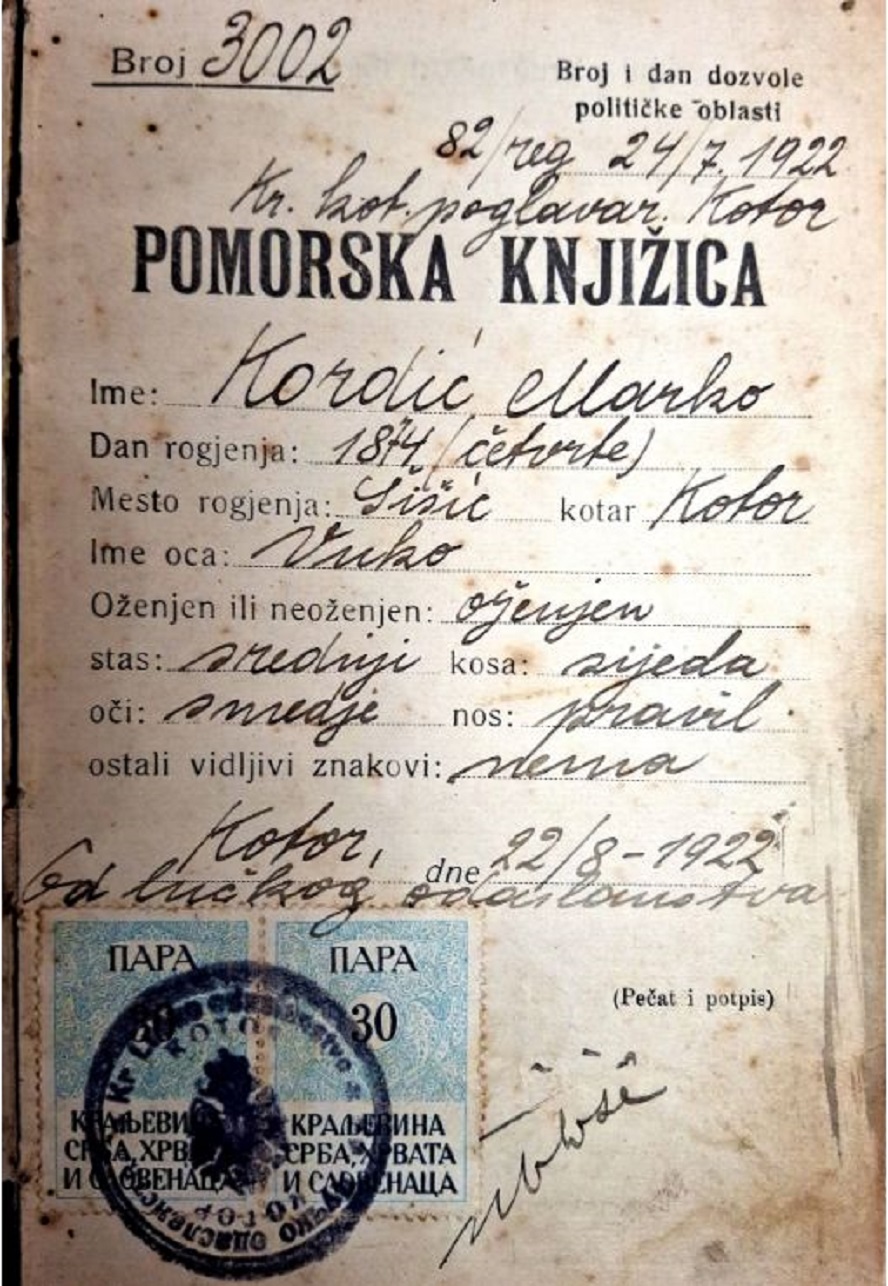 Broj 3002
Broj i dan dozvole
političke oblasti
82/reg 24/7. 1922
Kr. kot. poglavar. Kotor
POMORSKA KNJIŽICA
Ime: Kordić Marko
Dan rogjenja: 1874 (četvrte)
Mesto rogjenja: Šišić kotar Kotor
Ime oca: Vuko
Oženjen ili neoženjen: oženjen
stas: srednji kosa: sijeda
oči: smedje nos: pravil.
ostali vidljivi znakovi: nema
Kotor, dne 22/8-1922
Od lučkog odaslanstva
ПАРА ПАРА
30 30
КРАЉЕВИНА КРАЉЕВИНА
СРБА, ХРВАТА СРБА, ХРВАТА
И СЛОВЕНАЦА И СЛОВЕНАЦА
(Pečat i potpis)
KOTOR
КОТОР